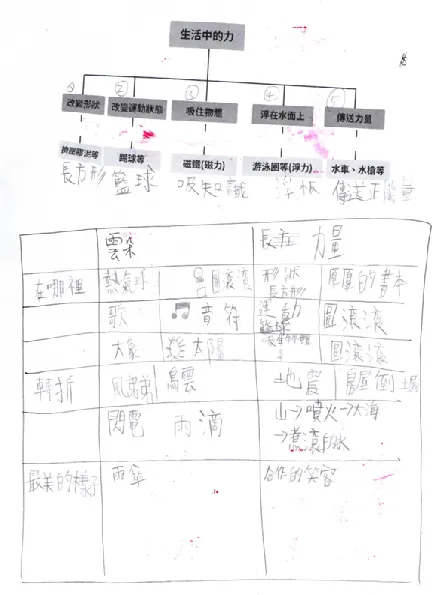 生活中的力
① ② ③ ④ ⑤
改變形狀 改變運動狀態 吸住物體 浮在水面上 傳送力量
擠壓黏泥等 踢球等 磁鐵(磁力) 游泳圈等(浮力) 水車、水槍等
長方形 籃球 吸知識 浮板 傳送正能量
雲朵 長在 力量
在哪裡 熱氣球 圓滾滾 形狀 長方形 厚厚的書本
歌 音符 運動 籃球 圓滾滾
大象 太陽 圓滾滾
轉折 風弟弟 烏雲 地震 房屋倒塌
閃電 雨滴 山→噴火→大海
→煮滾的水
最美的樣子 雨傘 合作的笑容